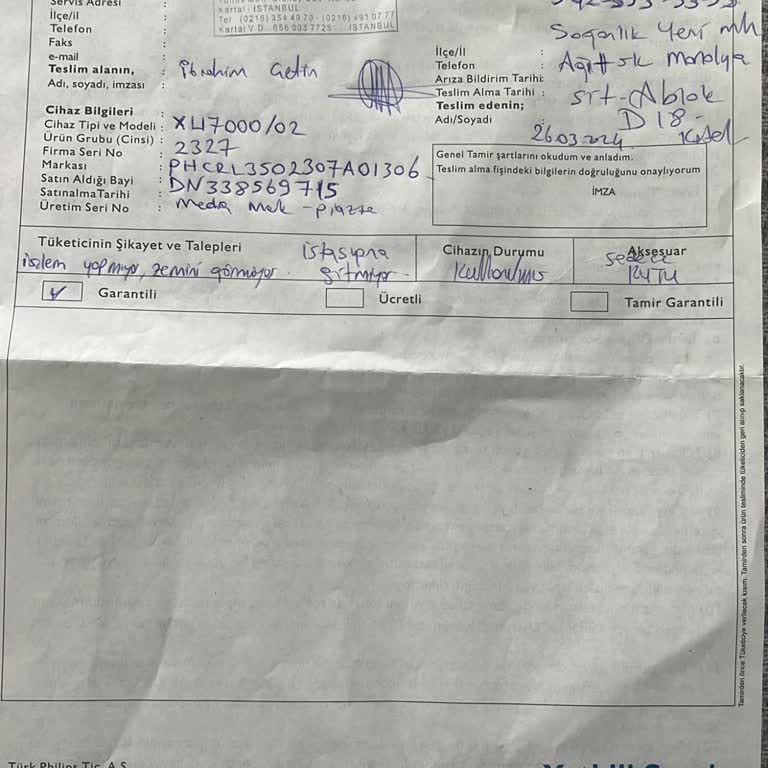 Servis Adresi :
Kartal / İSTANBUL
Tel (0216) 354 49 70 - (0216) 491 07 77
Kartal V.D. 656 003 7725 İSTANBUL
İlçe/il :
Telefon :
Faks :
e-mail
Teslim alanın, : İbrahim Çetin
Adı, soyadı, imzası
Soğanlık Yeni mh
İlçe/İl :
Telefon :
Arıza Bildirim Tarihi:
Teslim Alma Tarihi :
Teslim edenin;
Adı/Soyadı
sit-A blok
D 18-
26.03.2024
Cihaz Bilgileri
Cihaz Tipi ve Modeli : XU7000/02
Ürün Grubu (Cinsi) : 2327
Firma Seri No : PHCRL3502307A01306
Markası : DN338569715
Satın Aldığı Bayi : Media Mak - piazza
Satınalma Tarihi :
Üretim Seri No :
Genel Tamir şartlarını okudum ve anladım.
Teslim alma fişindeki bilgilerin doğruluğunu onaylıyorum
İMZA
Tüketicinin Şikayet ve Talepleri
işlem yapmıyor, zemini görmüyor. istasyona gitmiyor.
Cihazın Durumu
Kullanılmış
Aksesuar
KUTU
Garantili
Ücretli
Tamir Garantili
Tamirden önce Tüketiciye verilecek kısım. Tamirden sonra ürün tesliminde tüketiciden geri alınıp saklanacaktır.
Türk Philips Tic. A.S.